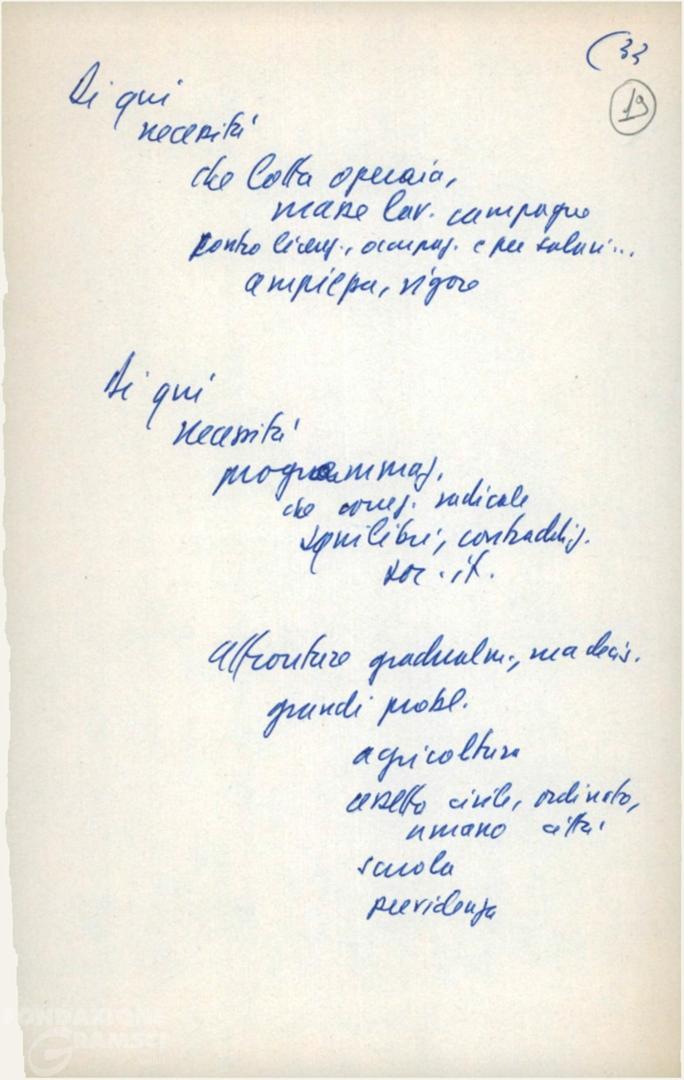 (33
19
Di qui
necessità
che lotta operaia,
masse lav. campagne
contro licenz., occupaz. e per salari...
ampiezza, vigore
Di qui
necessità
programmaz.
che correg. radicale
squilibri, contraddiz.
soc. it.
affrontare gradualm., ma decis.
grandi probl.
agricoltura
assetto civile, ordinato,
umano città
scuola
previdenza
FONDAZIONE
GRAMSCI